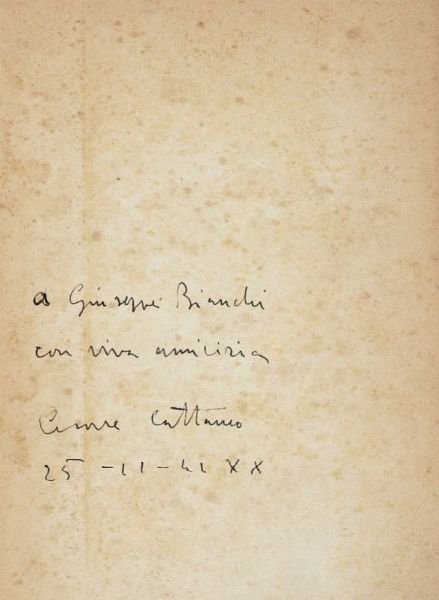 a Giuseppe Bianchi
con viva amicizia
Cesare Cattaneo
25 - 11 - 41 XX